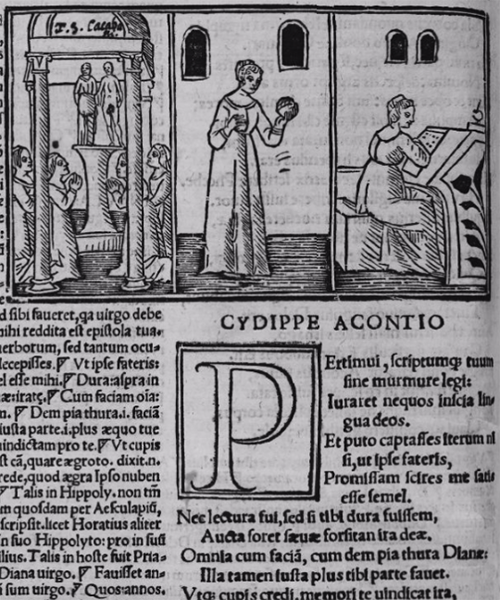 d sibi faueret,qa uirgo debe
nihi reddita est epistola tua.
uerborum, sed tantum ocu-
ccepisses. ¶ Vt ipse fateris:
el esse mihi. ¶ Dura:aspra in
æ:iratę. ¶ Cum faciam oīa:
n. ¶ Dem pia thura.i. faciā
iusta parte.i.plus æquo tue
uindictam pro te. ¶ Vt cupis
st cā,quare ægroto. dixit.n.
rede,quod ægra Ipso nuben
¶ Talis in Hippoly. non tm̄
m quosdam per Aesculapiū,
scripsit.licet Horatius aliter
in suo Hippolyto: pro in sui
ilius. Talis in hoste fuit Pria-
Diana uirgo. ¶ Fauisset an-
i sum uirgo. ¶ Quos:annos.
CYDIPPE ACONTIO
PErtimui, scriptumq; tuum
sine murmure legi:
Iuraret nequos inscia lin
gua deos.
Et puto captasses iterum ni
si,ut ipse fateris,
Promissam scires me satis
esse semel.
Nec lectura fui,sed si tibi dura fuissem,
Aucta foret sæuæ forsitan ira deæ.
Omnia cum faciā, cum dem pia thura Dianæ:
Illa tamen iusta plus tibi parte fauet.
Vtq; cupis credi,memori te uindicat ira,